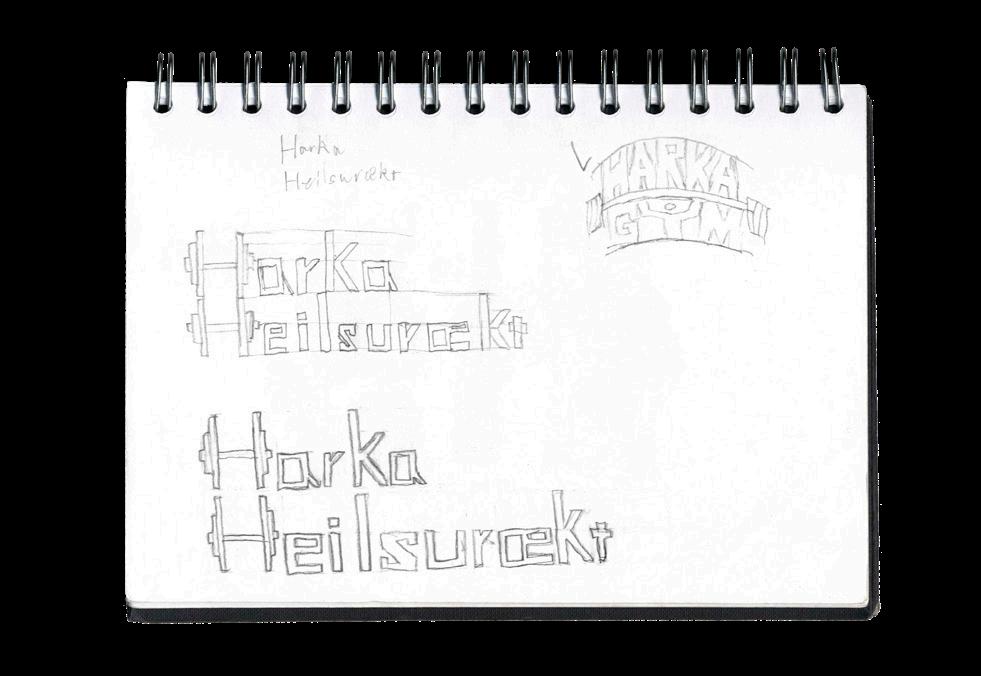 Harka
Heilsurækt
HARKA
GYM
Harka
Heilsurækt
Harka
Heilsurækt